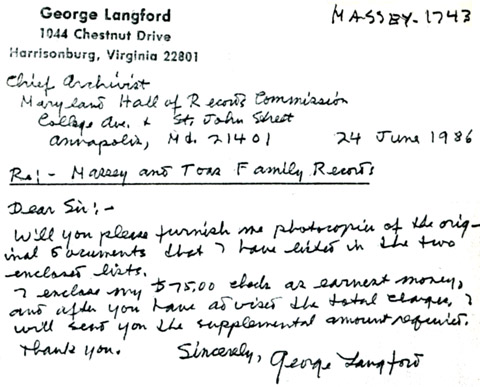 George Langford
1044 Chestnut Drive
Harrisonburg, Virginia 22801
MASSEY-1743
Chief Archivist
Maryland Hall of Records Commission
College Ave. & St. John Street
Annapolis, Md. 21401
24 June 1986
Re:- Massey and Toas Family Records
Dear Sir:-
Will you please furnish me photocopies of the orig-
inal documents that I have listed in the two
enclosed lists.
I enclose my $75.00 check as earnest money,
and after you have advised the total charges, I
will send you the supplemental amount required.
Thank you.
Sincerely, George Langford